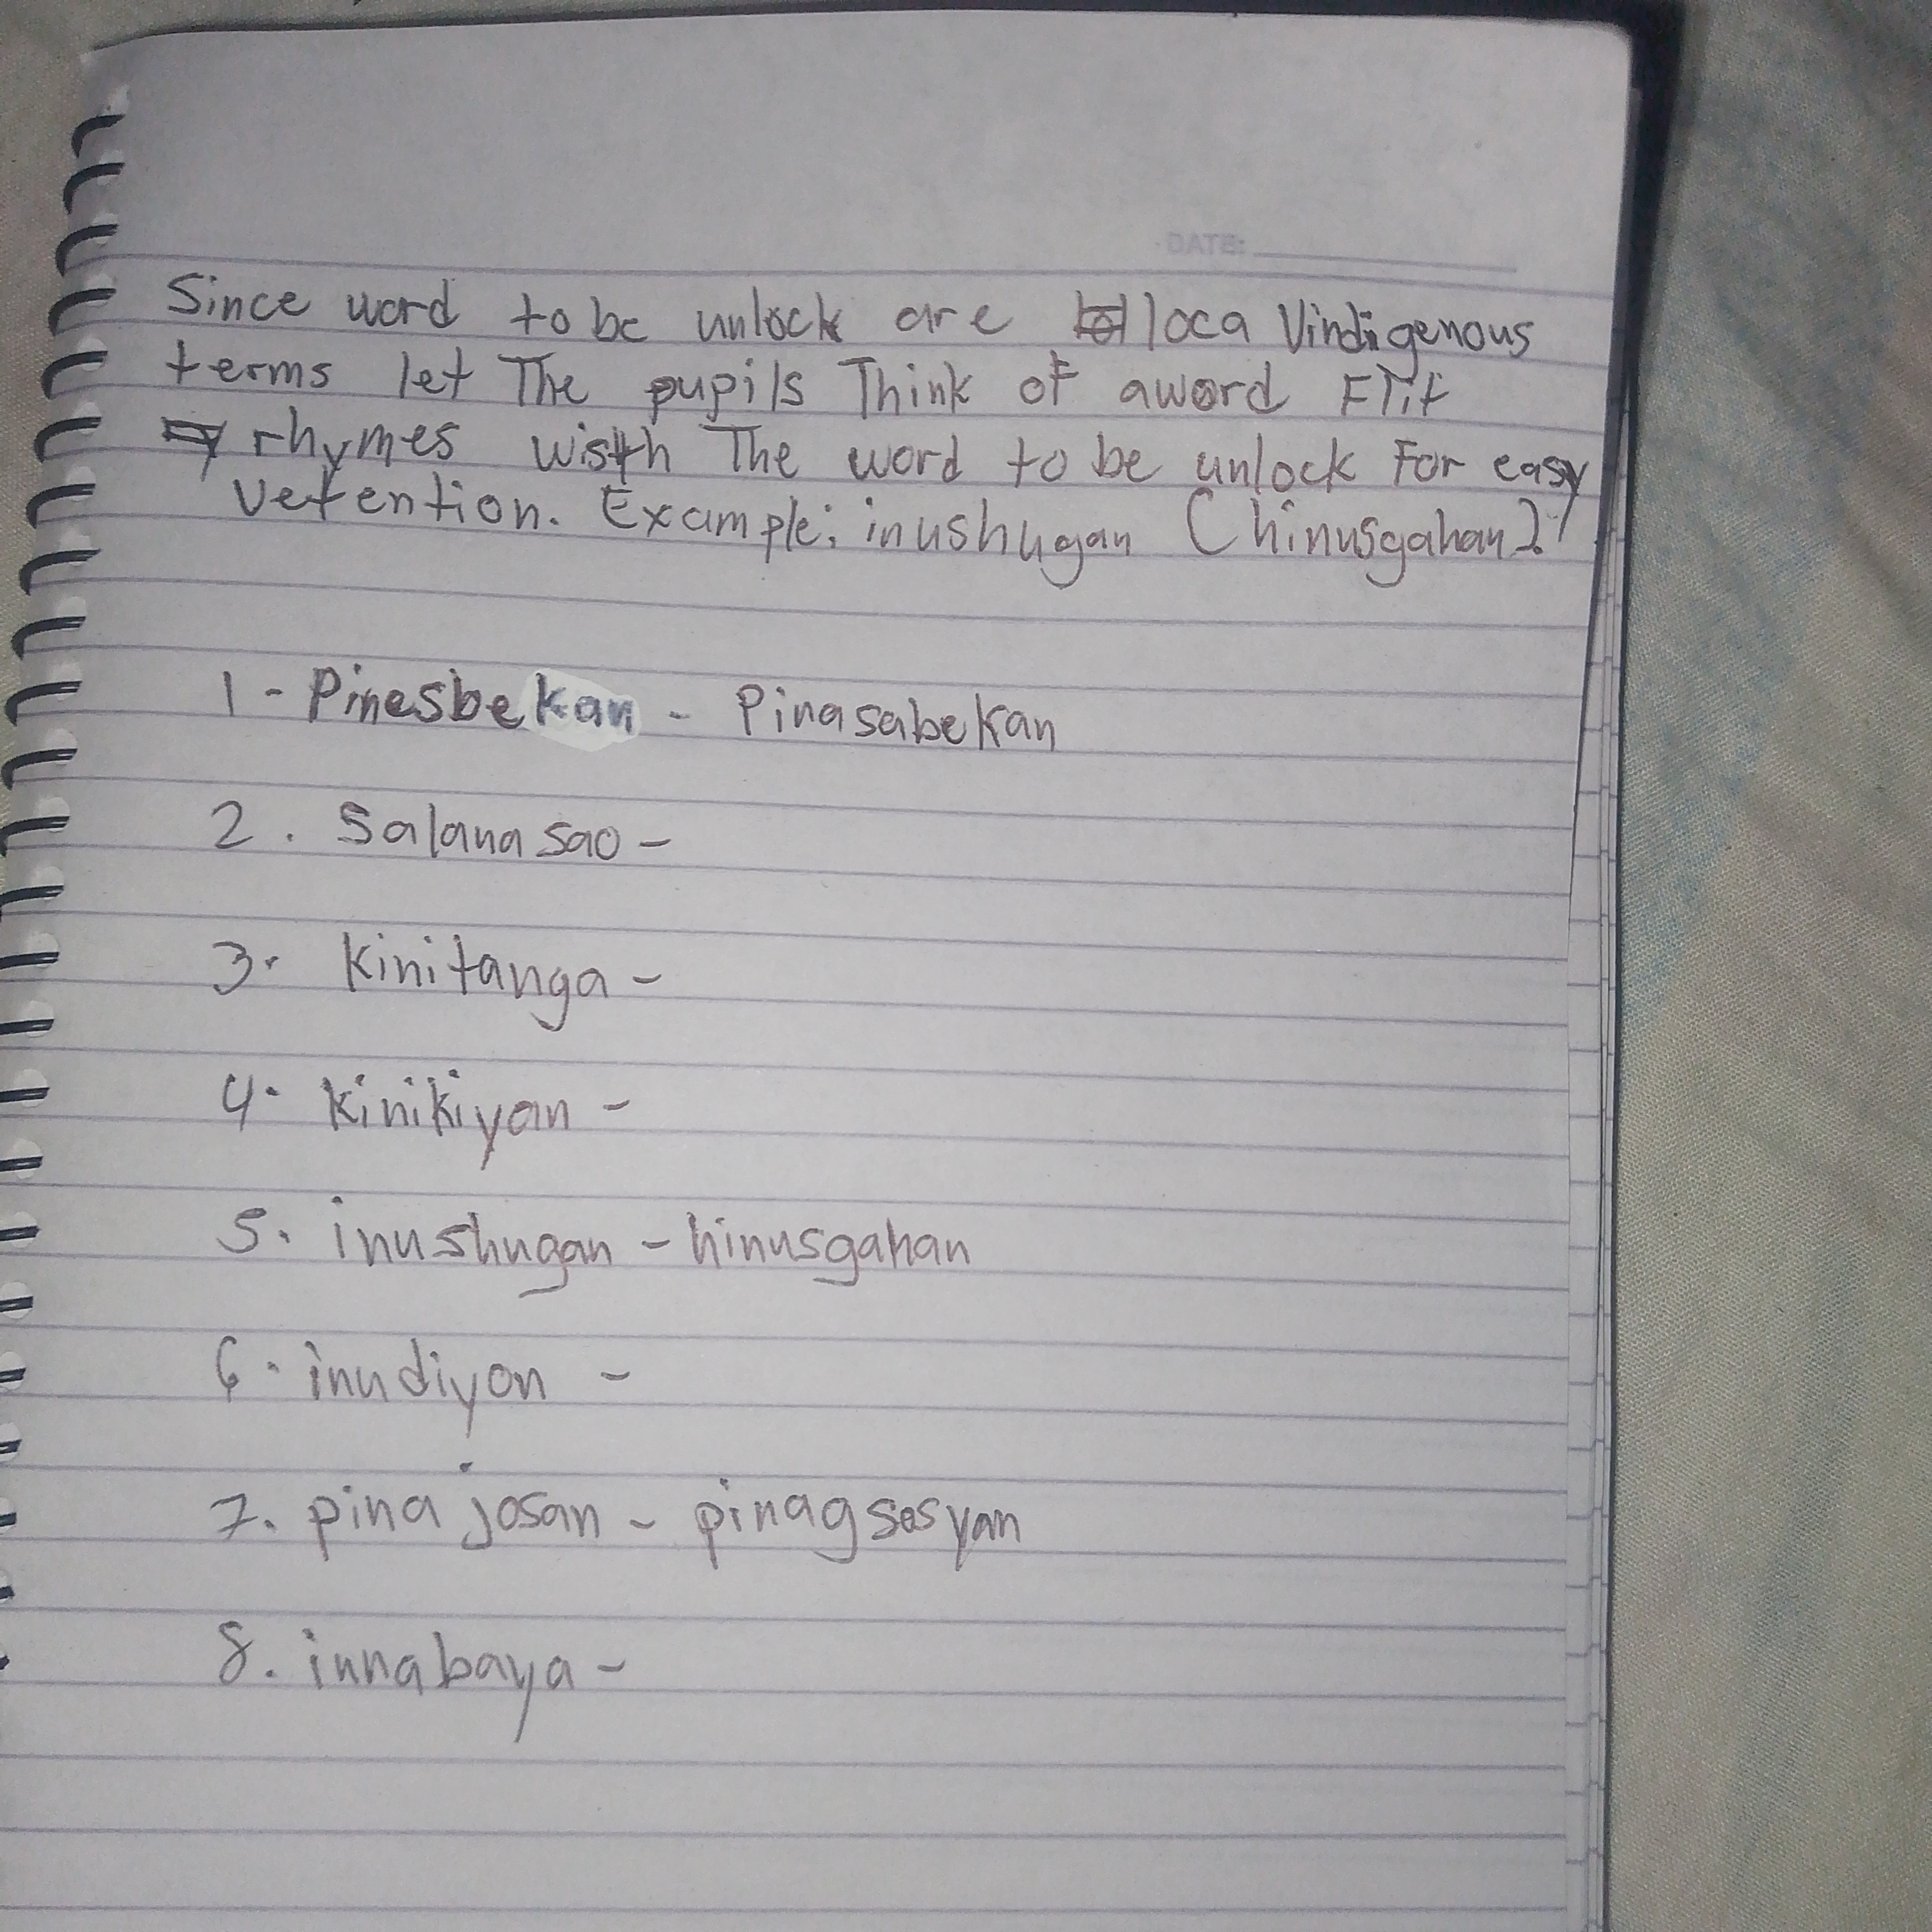 DATE:
Since word to be unlock are loca Vindigenous
terms let The pupils Think of aword
rhymes with The word to be unlock For easy
vetention. Example; inushugan (hinusgahan)!
1 - Pinesbekan - Pinasabekan
2. Salanasao -
3. Kinitanga -
4. Kinikiyan -
5. inushugan - hinusgahan
6. inudiyon -
7. pinajosan - pinagsosyan
8. innabaya -